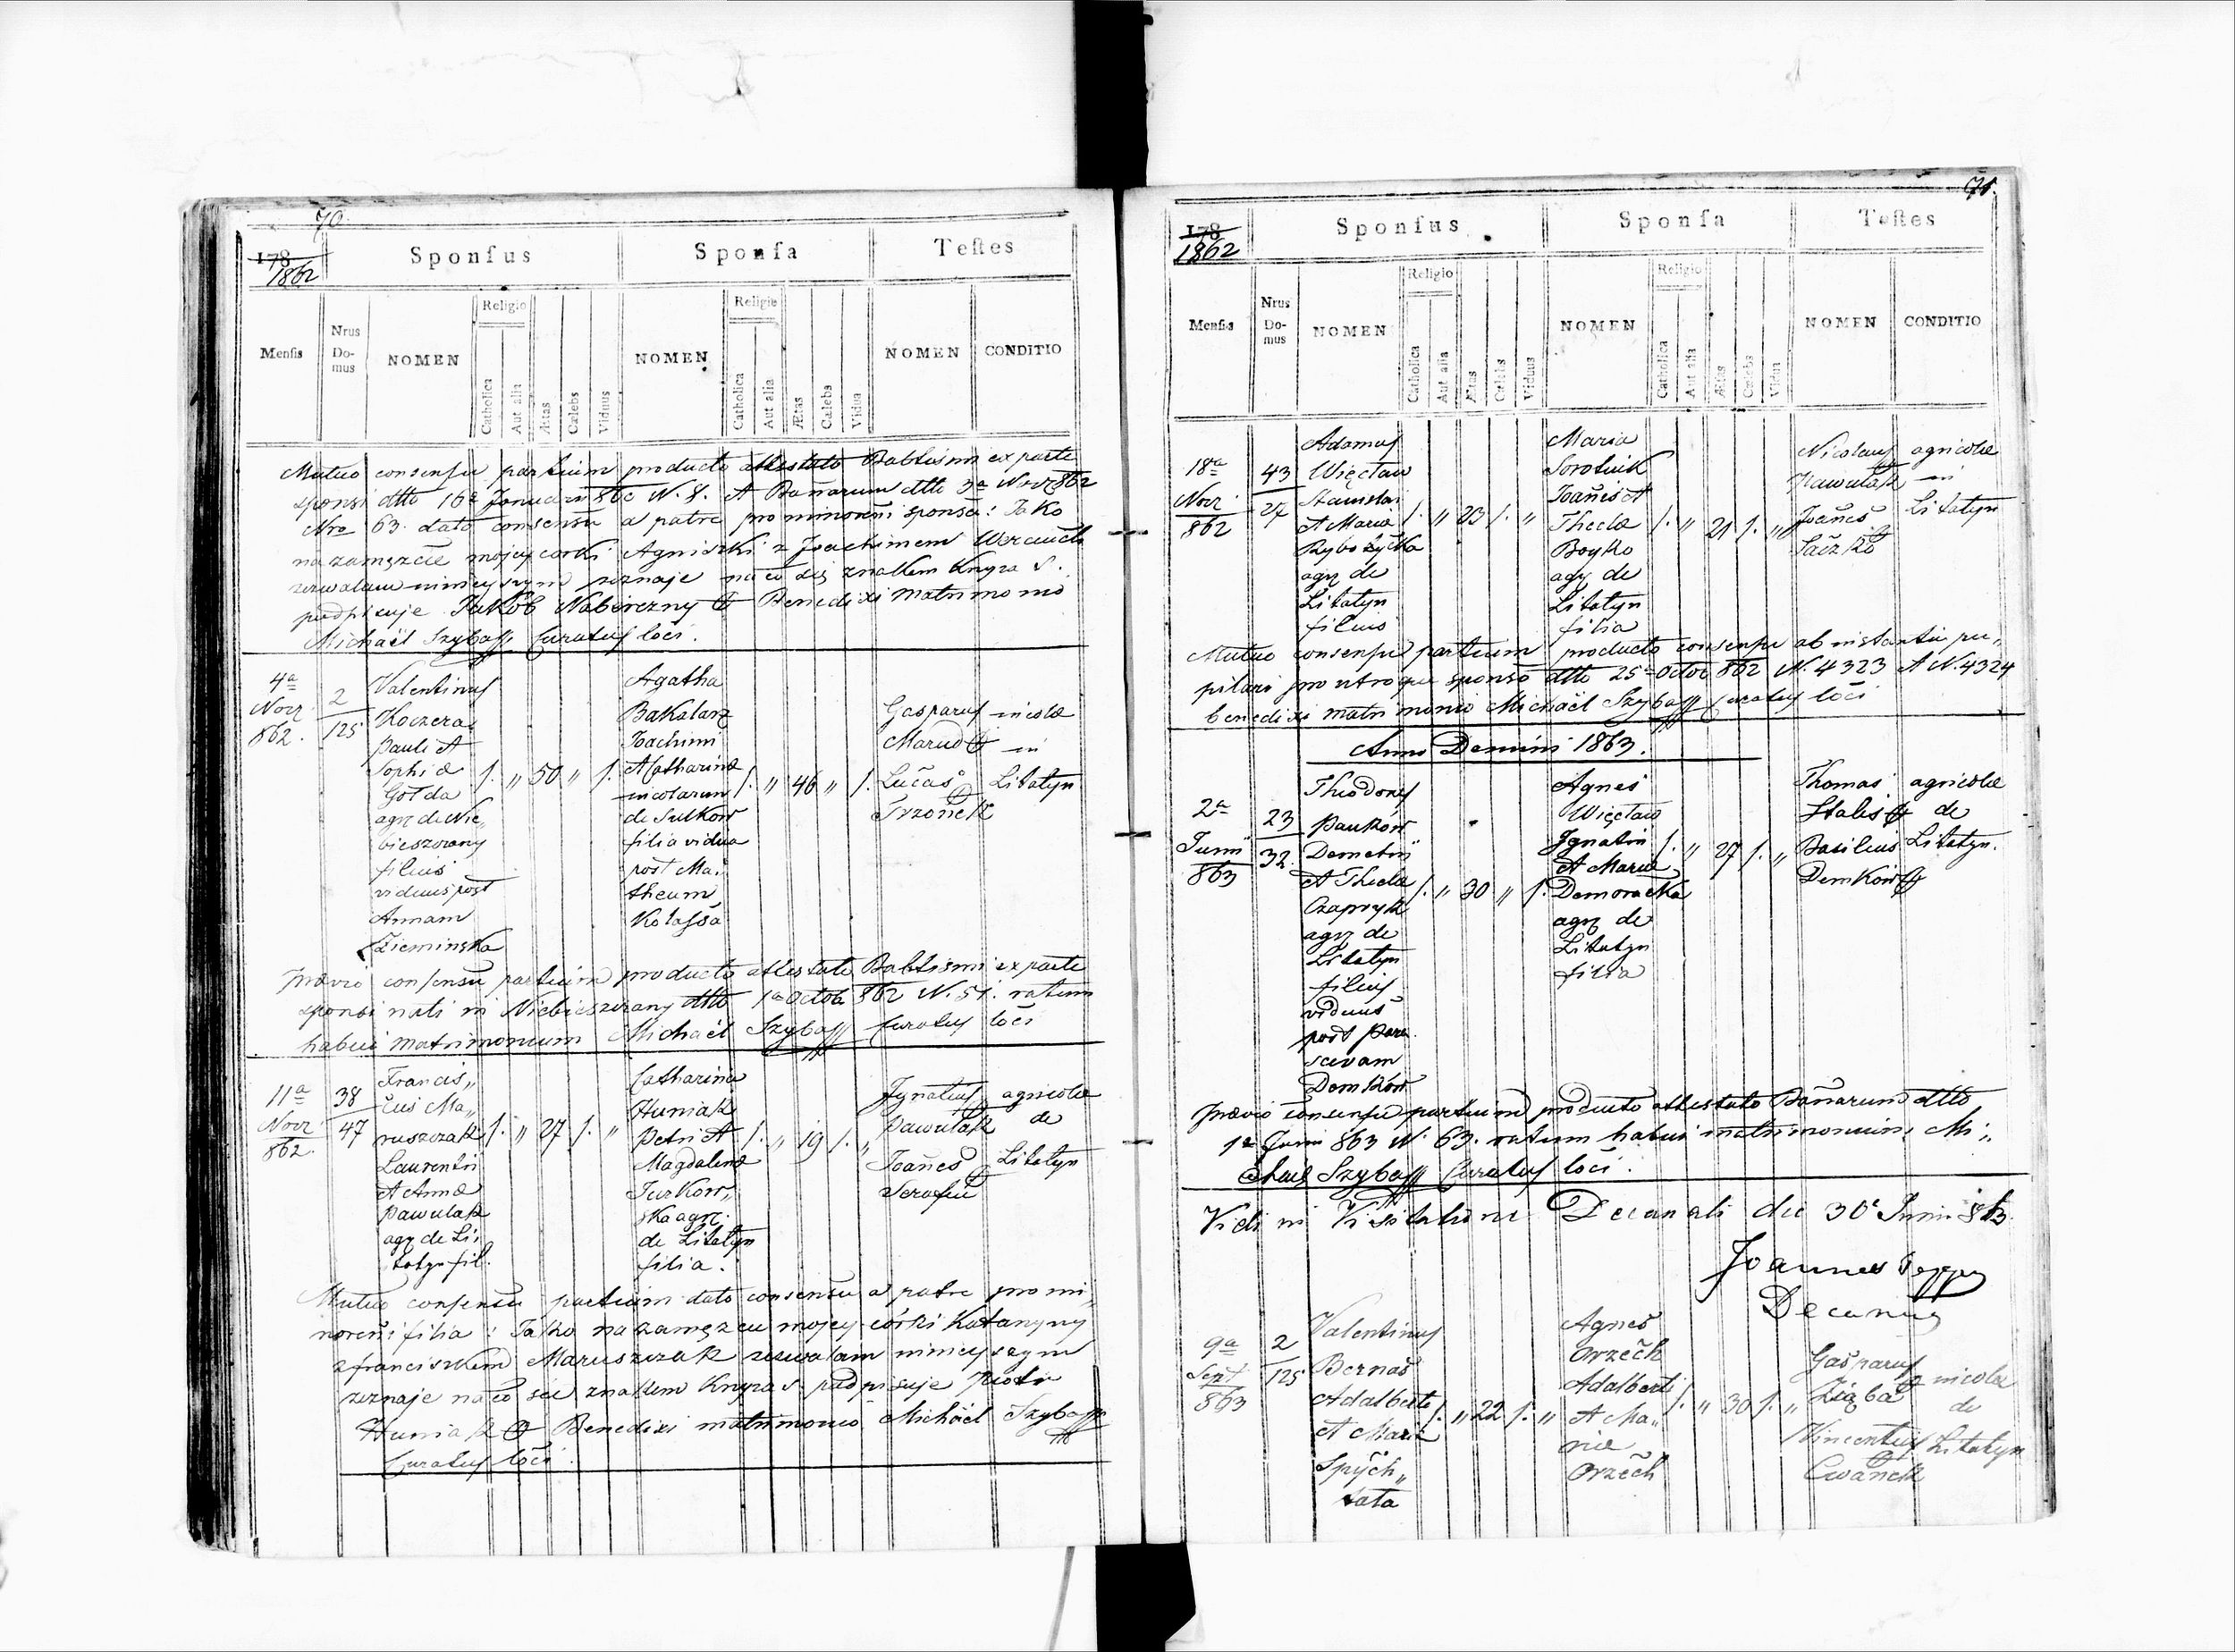 70.
178
1862
Sponsus
Sponsa
Testes
Mensis
Nrus Domus
NOMEN
Religio
Catholica
Aut alia
Ætas
Cælebs
Viduus
NOMEN
Religio
Catholica
Aut alia
Ætas
Cælebs
Vidua
NOMEN
CONDITIO
Mutuo consensu partium producto attestato Babtismi ex parte
sponsi dtto 16a Januarii 862 N. 8. et Banarum dtto 3a Novr 862
Nro 63. dato consensu a patre pro minoreni sponsa: Jako
na zamęzcie mojey corki Agniszki z Joachimem
zezwalam nineyszym zeznaje na co się znakem knyza S.
podpisuje Jakób Naberezny Benedixi matrimonio
Michaël Szyba Curatus loci.
4a
Novr
862.
2
125
Valentinus
Koczera
Pauli et
Sophiæ
Gołda
agr. de Nie„
bieszczany
filius
viduus post
Annam
Zieminska
/. „ 50 „ /.
Agatha
Bakalarz
Joachimi
et Catharinæ
incolarum
de Sulkow
filia vidua
post Ma„
theum
Kolassa
/. „ 46 „ /.
Gasparus
Marud
Lucas
Trzonek
incolæ
in
Litatyn
Prævio consensu partium producto attestato Babtismi ex parte
sponsi nati in Niebieszczany dtto 1a Octob 862 N. 51. ratum
habui matrimonium Michaël Szyba Curatus loci
11a
Novr
862.
38
47
Francis„
cus Ma„
ruszczak
Laurentii
et Annæ
Pawulak
agr. de Li„
tatyn fil.
/. „ 27 /. „
Catharina
Huniak
Petri et
Magdalenæ
Turkow„
ska agr.
de Litatyn
filia.
/. „ 19 /. „
Ignatius
Pawulak
Joanes
Serafin
agricolæ
de
Litatyn
Mutuo consensu partium dato consensu a patre pro mi„
noreni filia: Jako na zamęzcu mojey córki Katarzyny
z franciszkem Maruszczak zezwalam nineyszym
zeznaje na co sie znakem knyza S. podpisuje Piotr
Huniak Benedixi matrimonio Michaël Szyba
Curatus loci.
71.
178
1862
Sponsus
Sponsa
Testes
Mensis
Nrus Domus
NOMEN
Religio
Catholica
Aut alia
Ætas
Cælebs
Viduus
NOMEN
Religio
Catholica
Aut alia
Ætas
Cælebs
Vidua
NOMEN
CONDITIO
18a
Novr
862
43
27
Adamus
Więcław
Stanislai
et Mariæ
agr. de
Litatyn
filius
/. „ 23 /. „
Maria
Sorotiuk
Joanis et
Theclæ
Boyko
agr. de
Litatyn
filia
/. „ 21 /. „
Nicolaus
Pawulak
Joanes
agricolæ
in
Litatyn
Mutuo consensu partium producto consensu ab instantia pu„
pilari pro utroque sponso dtto 25a Octob 862 N. 4323 et N. 4324
benedixi matrimonio Michaël Szyba Curatus loci
Anno Domini 1863.
2a
Junii
863
23
32
Theodorus
Pańków
Demetrii
et Theclæ
agr. de
Litatyn
filius
viduus
post Para„
scevam
Demków
/. „ 30 „ /.
Agnes
Więcław
Ignatii
et Mariæ
agr. de
Litatyn
filia
/. „ 27 /. „
Thomas
Basilius
Demków
agricolæ
de
Litatyn.
Prævio consensu partium producto attestato Banarum dtto
1a Junii 863 N. 63. ratum habui matrimonium. Mi„
chael Szyba Curatus loci.
Vidi in Visitatione Decanali die 30a Junii 863.
Joannes
Decanus
9a
Sept
863
2
125
Valentinus
Bernas
Adalberti
et Mariæ
Spych„
tata
/. „ 22 /. „
Agnes
Orzech
Adalberti
et Ma„
riæ
Orzech
/. „ 30 /. „
Gasparus
Zięba
Vincentius
Cwanek
incolæ
de
Litatyn